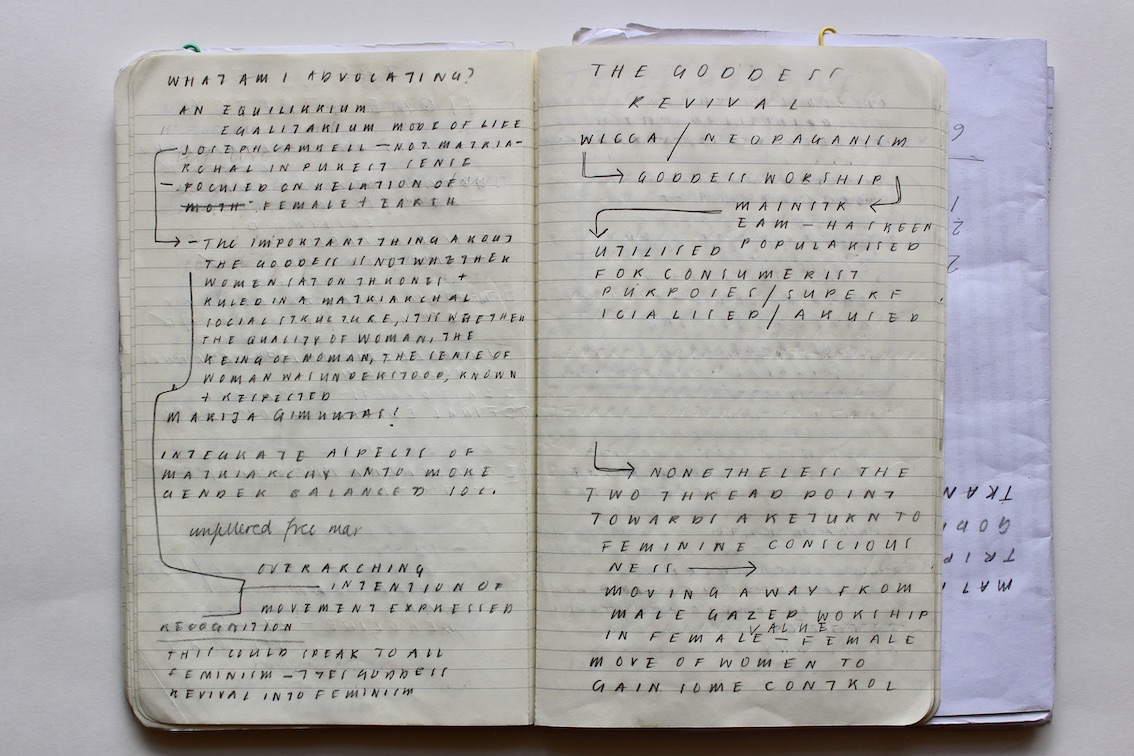 WHAT AM I ADVOCATING?
AN EQUILIBRIUM
EGALITARIUM MODE OF LIFE
JOSEPH CAMBELL — NOT MATRIA-
RCHAL IN PUREST SENSE
— FOCUSED ON RELATION OF
MOTH FEMALE + EARTH
— THE IMPORTANT THING ABOUT
THE GODDESS IS NOT WHETHER
WOMEN SAT ON THRONES +
RULED IN A MATRIARCHAL
SOCIAL STRUCTURE, IT IS WHETHER
THE QUALITY OF WOMAN, THE
BEING OF WOMAN, THE SENSE OF
WOMAN WAS UNDERSTOOD, KNOWN
+ RESPECTED
MARIJA GIMBUTAS!
INTEGRATE ASPECTS OF
MATRIARCHY INTO MORE
GENDER BALANCED SOC.
free mar
OVERARCHING
INTENTION OF
MOVEMENT EXPRESSED
RECOGNITION
THIS COULD SPEAK TO ALL
FEMINISM — GODDESS
REVIVAL INTO FEMINISM
THE GODDESS
REVIVAL
WICCA / NEOPAGANISM
GODDESS WORSHIP
MAINSTR
EAM — HAS BEEN
POPULARISED
UTILISED
FOR CONSUMERIST
PURPOSES / SUPERF
ICIALISED / ABUSED
NONETHELESS THE
TWO THREAD POINT
TOWARDS A RETURN TO
FEMININE CONSCIOUS
NESS
MOVING AWAY FROM
MALE GAZED WORSHIP
VALUE
IN FEMALE — FEMALE
MOVE OF WOMEN TO
GAIN SOME CONTROL
6
1
2
2
TRAN
GOD
TRIP
MAT